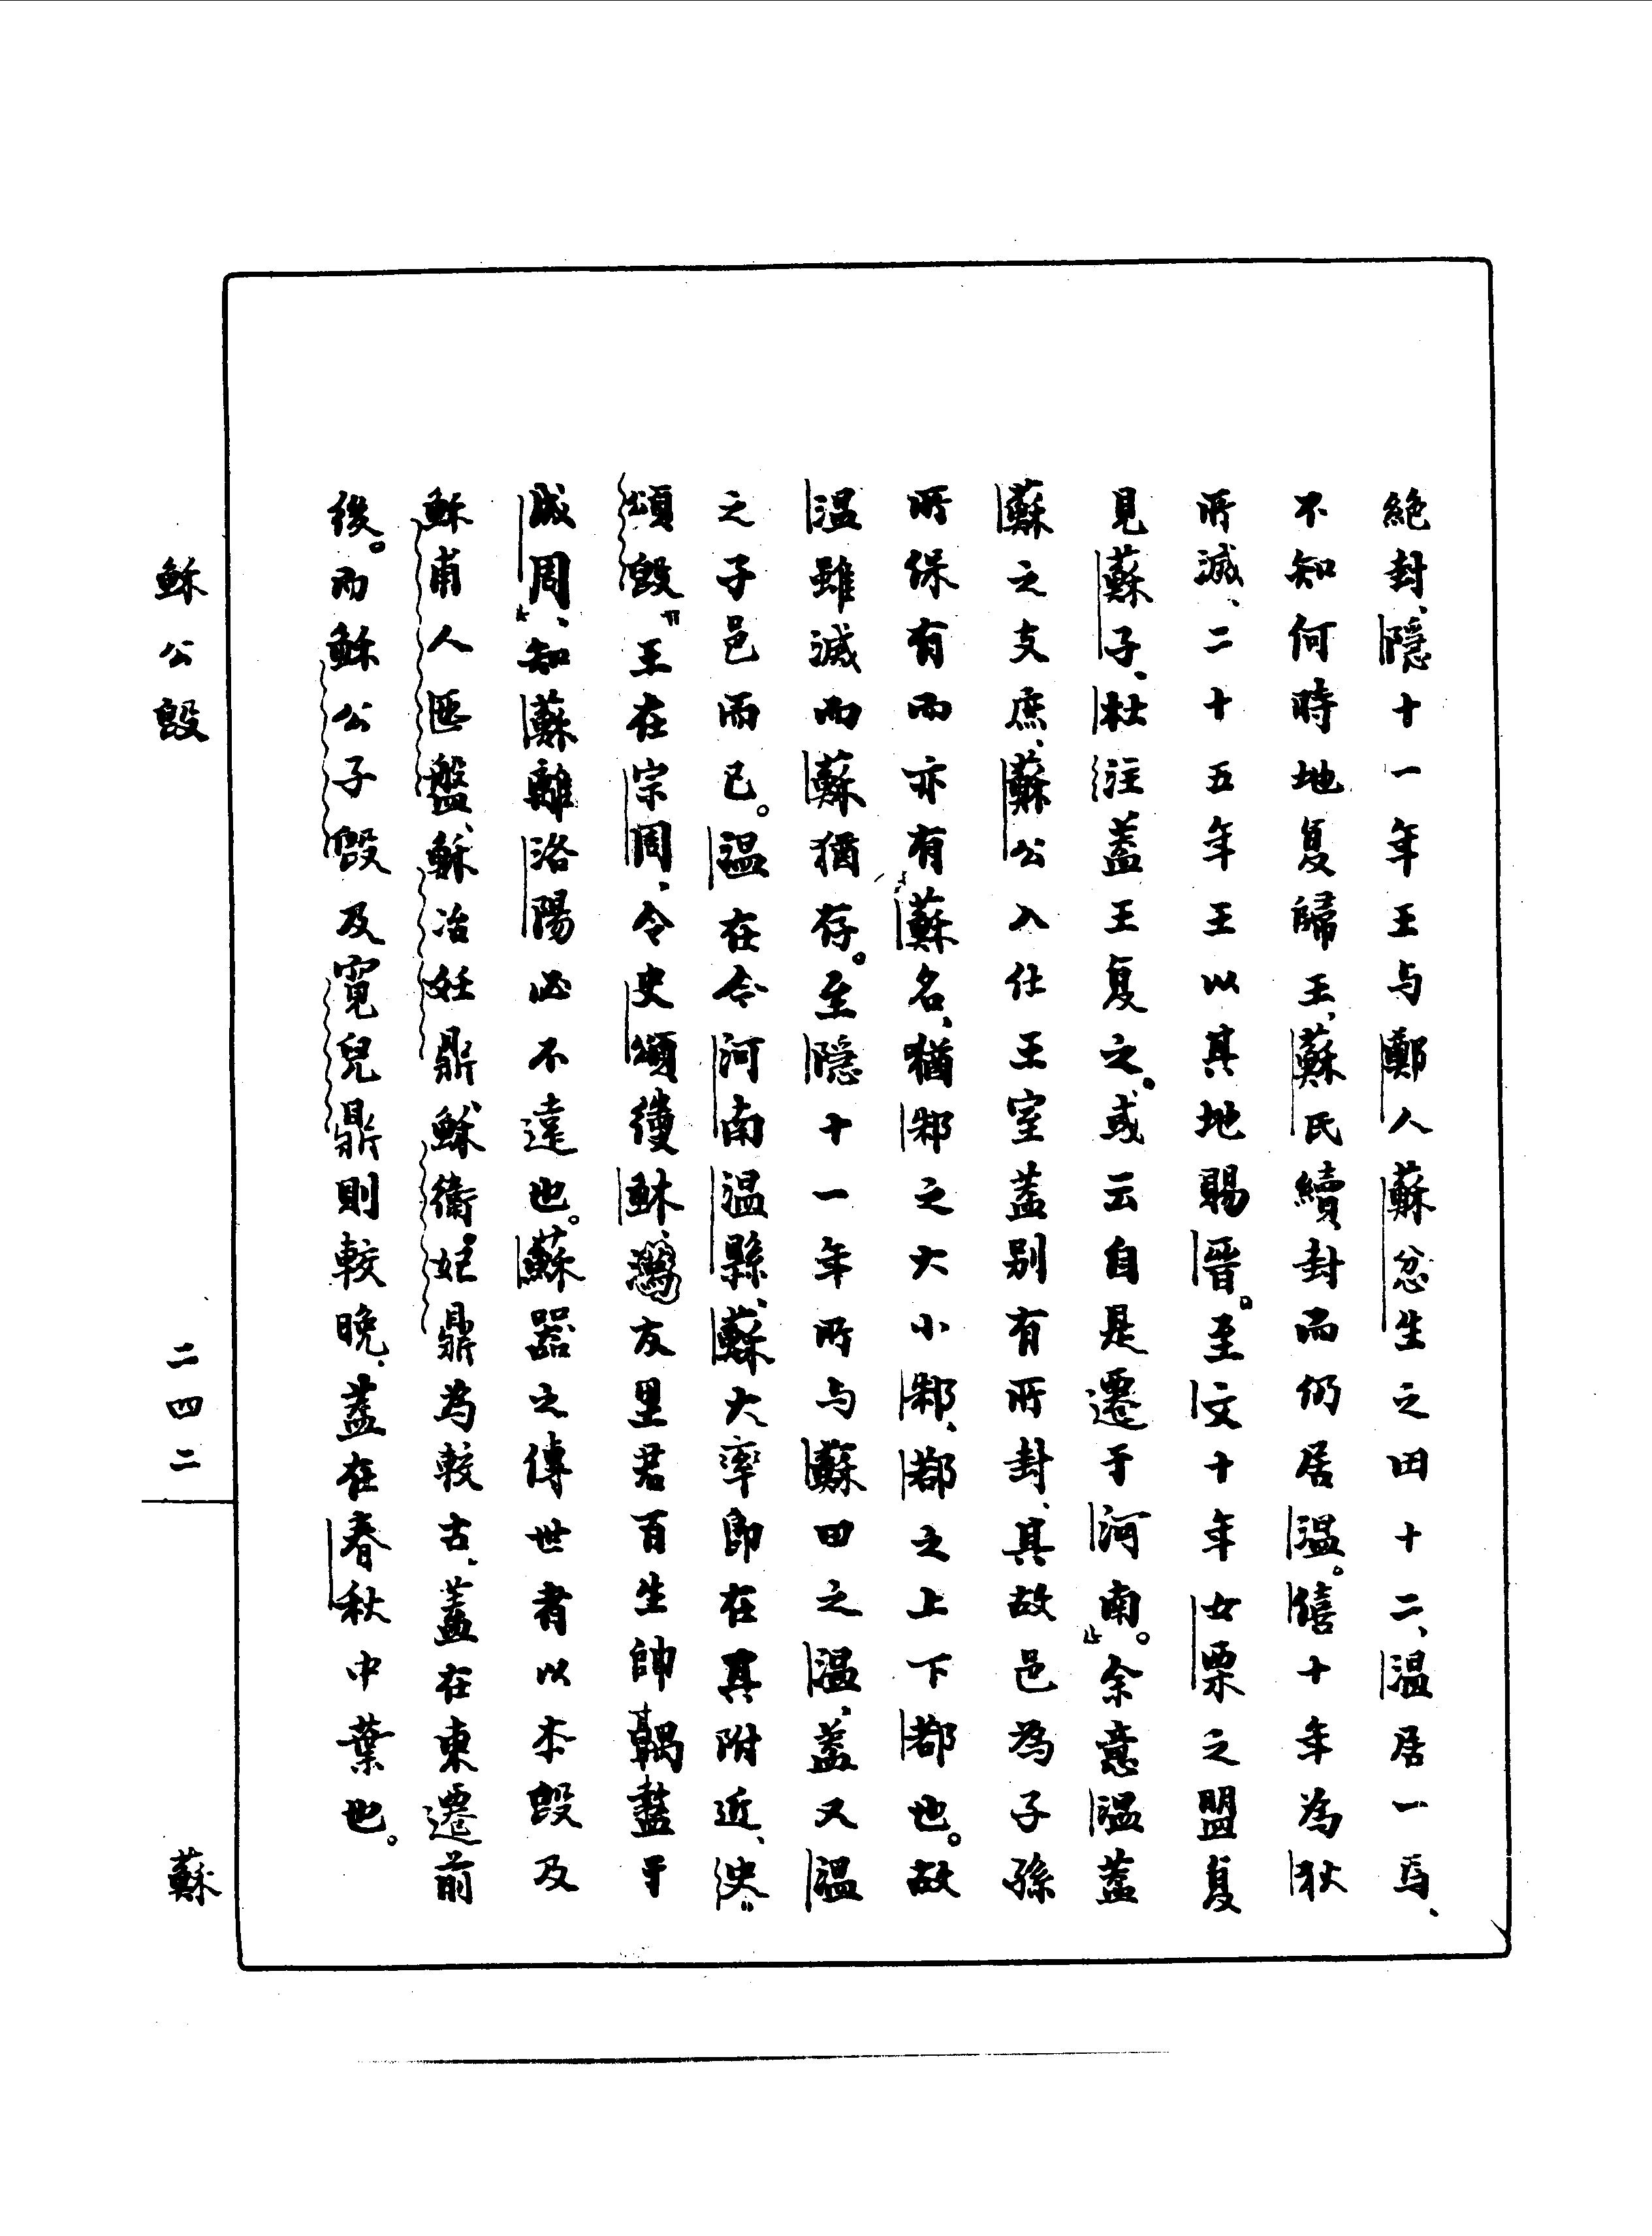 絶封、隱十一年王与鄭人蘇忿生之田十二、温居一焉、
不知何時地复歸王、蘇氏續封而仍居温。僖十年為狄
所滅、二十五年王以其地賜晋。至文十年女栗之盟复
見蘇子、杜注蓋王复之。或云自是遷于河南。余意温蓋
蘇之支庶、蘇公入仕王室蓋别有所封、其故邑為子孫
所保有而亦有蘇名、猶邾之大小邾、鄀之上下鄀也。故
温雖滅而蘇猶存。至隱十一年所与蘇田之温、蓋又温
之子邑而已。温在今河南温縣、蘇大率即在其附近、史
頌𣪘“王在宗周、令史頌𢕌穌、友里君百生帥堣盩于
成周”、知蘇離洛陽必不遠也。蘇器之傳世者以本𣪘及
穌甫人匜盤、穌冶妊鼎穌衛妃鼎為較古、蓋在東遷前
後。而穌公子𣪘及寬兒鼎則較晚、蓋在春秋中葉也。
穌公𣪘
二四二
蘇